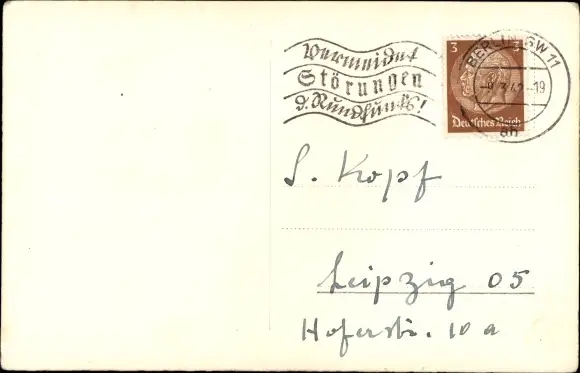 Vermeidet
Störungen
d. Rundfunks!
3 3
Deutsches Reich
BERLIN SW 11
-19
an
S. Kopf
Leipzig O5
Hoferstr. 10a